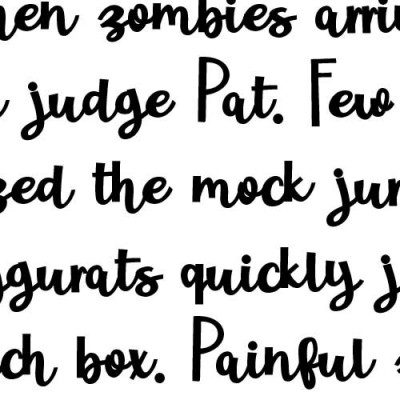 hen zombies arri
judge Pat. Few
zed the mock jur
ggurats quickly j
ch box. Painful